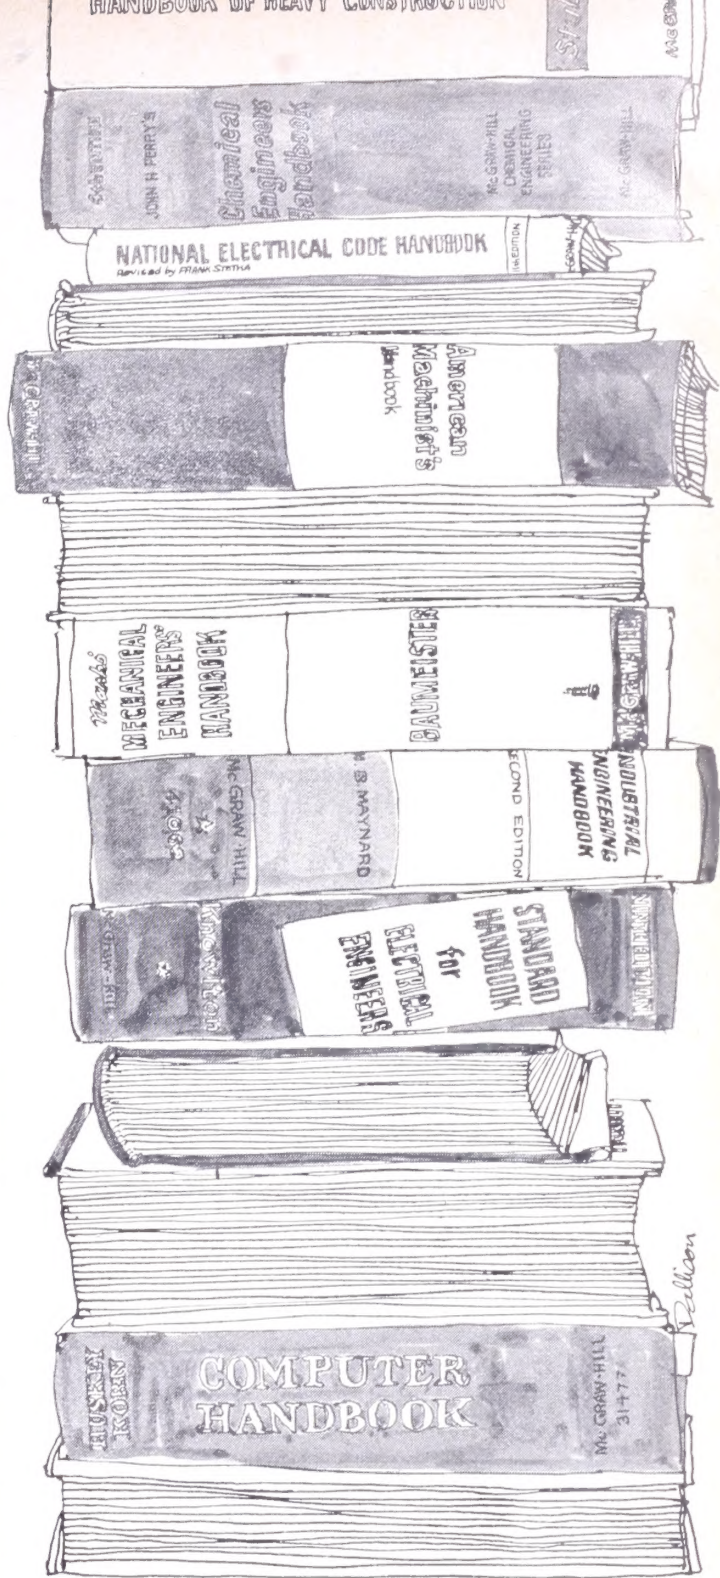 HANDBOOK OF HEAVY CONSTRUCTION
JOHN H PERRY'S
Chemical
Engineers
Handbook
McGRAW-HILL
CHEMICAL
ENGINEERING
SERIES
McGRAW-HILL
NATIONAL ELECTRICAL CODE HANDBOOK
Revised by FRANK STETKA
EDITION
American
Machinist's
Handbook
Marks'
MECHANICAL
ENGINEERS'
HANDBOOK
BAUMEISTER
McGRAW-HILL
McGRAW HILL
MAYNARD
ECOND EDITION
NDUSTRIAL
NGINEERING
HANDBOOK
Knowlton
STANDARD
HANDBOOK
for
ELECTRICAL
ENGINEERS
Pallison
HUSKEY
KORN
COMPUTER
HANDBOOK
McGRAW-HILL
31477